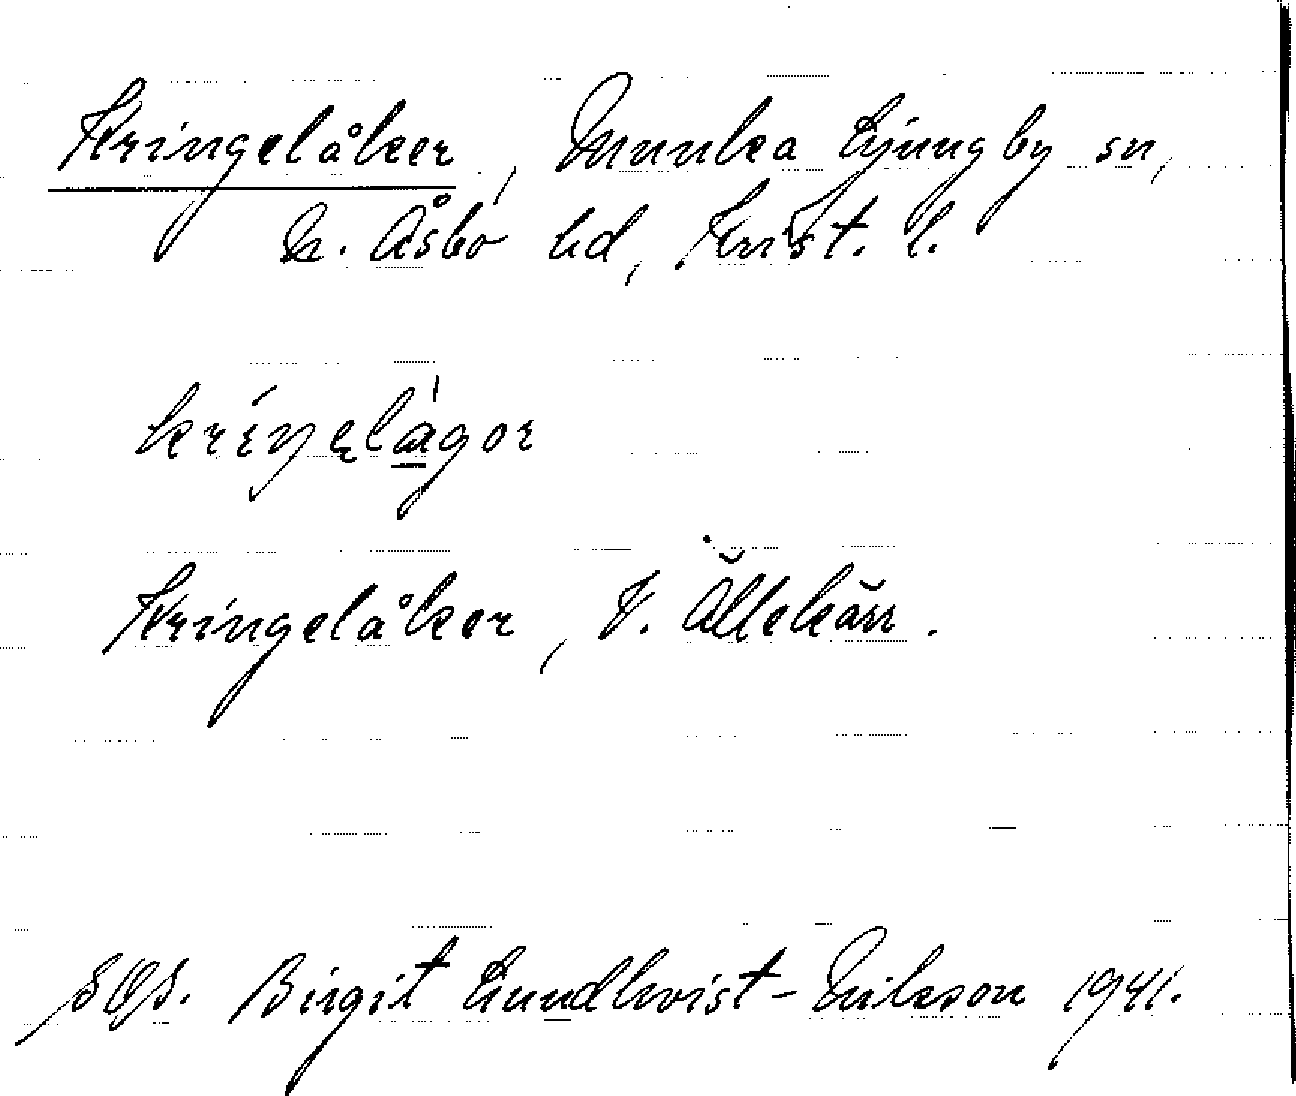 Kringelåker, Munka Ljungby sn,
N. Åsbo hd, Krist. l.
kríŋęlàgor
Kringelåker, V. Ällekärr.
SOS. Birgit Lundkvist-Nilsson 1941.